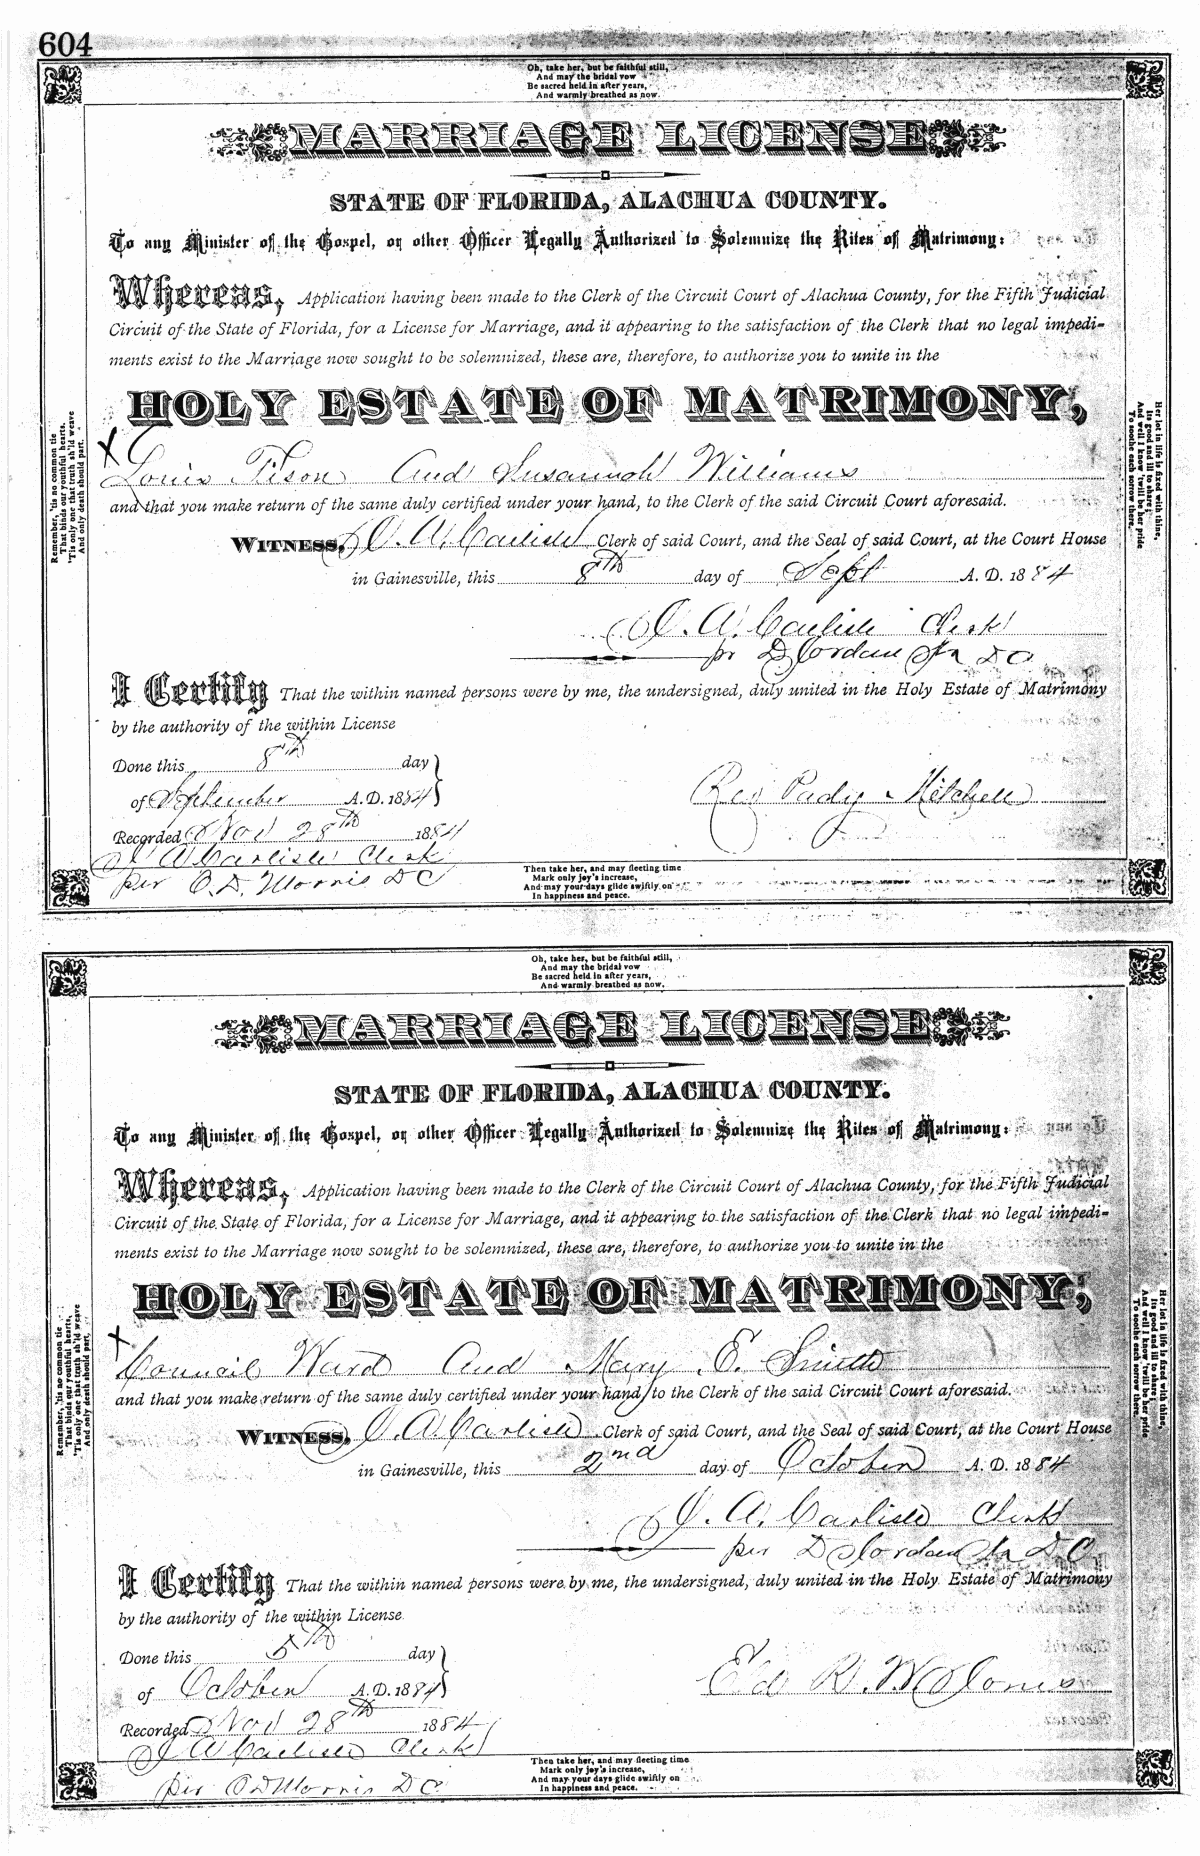 604
Oh, take her, but be faithful still,
And may the bridal vow
Be sacred held in after years,
And warmly breathed as now.
MARRIAGE LICENSE
STATE OF FLORIDA, ALACHUA COUNTY.
To any Minister of the Gospel, or other Officer Legally Authorized to Solemnize the Rites of Matrimony:
Whereas, Application having been made to the Clerk of the Circuit Court of Alachua County, for the Fifth Judicial
Circuit of the State of Florida, for a License for Marriage, and it appearing to the satisfaction of the Clerk that no legal impedi-
ments exist to the Marriage now sought to be solemnized, these are, therefore, to authorize you to unite in the
HOLY ESTATE OF MATRIMONY,
X
Louis Tison And Susannah Williams
and that you make return of the same duly certified under your hand, to the Clerk of the said Circuit Court aforesaid.
WITNESS, J. A. Carlisle Clerk of said Court, and the Seal of said Court, at the Court House
in Gainesville, this 8th day of Sept A. D. 1884
J. A. Carlisle Clerk
pr D Jordan Jr DC
I Certify That the within named persons were by me, the undersigned, duly united in the Holy Estate of Matrimony
by the authority of the within License
Done this 8th day
of September A. D. 1884
Rev Pady Mitchell
Recorded Nov 28th 1884
J A Carlisle Clerk
per O. D. Morris DC
Remember, 'tis no common tie
That binds our youthful hearts,
'Tis only one that truth sh'ld weave
And only death should part.
Her lot in life is fixed with thine,
Its good and ill to share;
And well I know 'twill be her pride
To soothe each sorrow there.
Then take her, and may fleeting time
Mark only joy's increase,
And may your days glide swiftly on
In happiness and peace.
Oh, take her, but be faithful still,
And may the bridal vow
Be sacred held in after years,
And warmly breathed as now.
MARRIAGE LICENSE
STATE OF FLORIDA, ALACHUA COUNTY.
To any Minister of the Gospel, or other Officer Legally Authorized to Solemnize the Rites of Matrimony:
Whereas, Application having been made to the Clerk of the Circuit Court of Alachua County, for the Fifth Judicial
Circuit of the State of Florida, for a License for Marriage, and it appearing to the satisfaction of the Clerk that no legal impedi-
ments exist to the Marriage now sought to be solemnized, these are, therefore, to authorize you to unite in the
HOLY ESTATE OF MATRIMONY,
X
Council Ward And Mary E. Smith
and that you make return of the same duly certified under your hand, to the Clerk of the said Circuit Court aforesaid.
WITNESS, J. A. Carlisle Clerk of said Court, and the Seal of said Court, at the Court House
in Gainesville, this 2nd day of October A. D. 1884
J. A. Carlisle Clerk
per D Jordan Jr DC
I Certify That the within named persons were by me, the undersigned, duly united in the Holy Estate of Matrimony
by the authority of the within License
Done this 5th day
of October A. D. 1884
Eld R. W.
Recorded Nov 28th 1884
J A Carlisle Clerk
per O D Morris DC
Remember, 'tis no common tie
That binds our youthful hearts,
'Tis only one that truth sh'ld weave
And only death should part.
Her lot in life is fixed with thine,
Its good and ill to share;
And well I know 'twill be her pride
To soothe each sorrow there.
Then take her, and may fleeting time
Mark only joy's increase,
And may your days glide swiftly on
In happiness and peace.